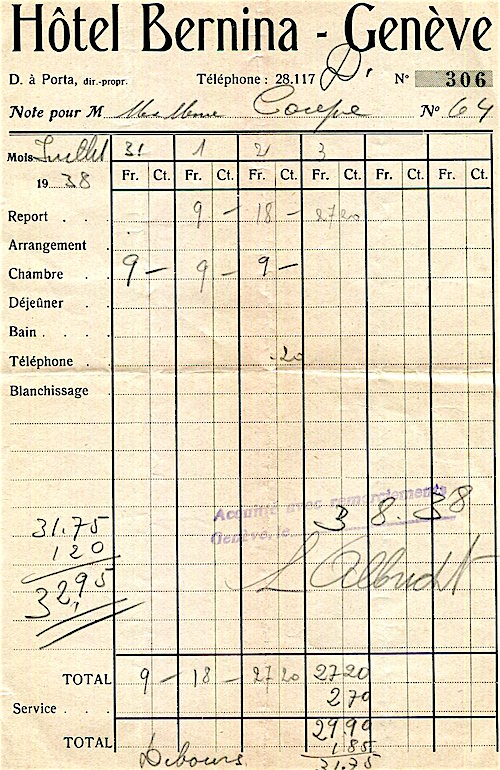 Hôtel Bernina - Genève
D. à Porta, dir.-propr. Téléphone: 28.117 N° 306
Note pour M Coupe N° 64
Mois Juillet 31 1 2 3
1938 Fr. Ct. Fr. Ct. Fr. Ct. Fr. Ct. Fr. Ct. Fr. Ct.
Report . . 9 — 18 — 27 20
Arrangement .
Chambre . . 9 — 9 — 9 —
Déjeûner . .
Bain . . . .
Téléphone . . .20
Blanchissage .
Acquitté avec remerciements
Genève, le 3 8. 38
31.75
1 20
32,95
L Albrecht
TOTAL 9 — 18 — 27 20 27 20
Service . . . 2 70
TOTAL 29.90
Débours 1.85
31.75